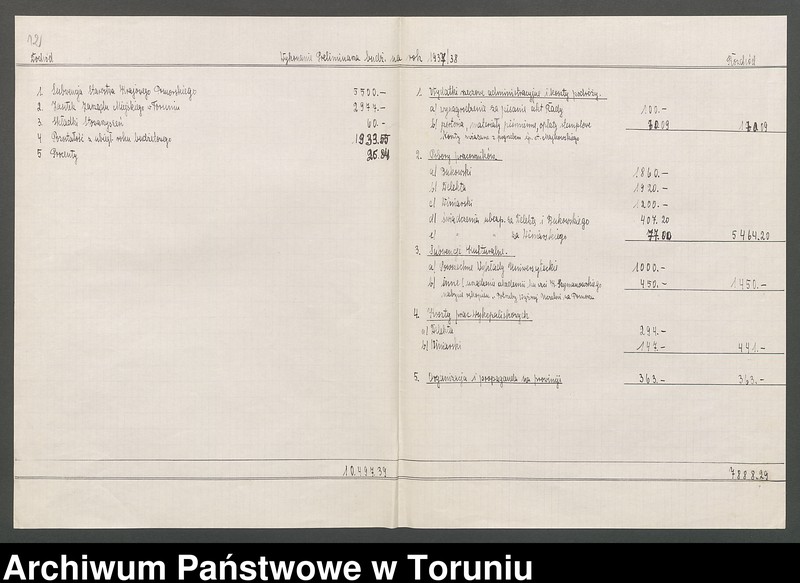 12)
Dochód
Wykonanie Preliminarza budż. na rok 1937/38
Rozchód
1. Subwencja Starostwa Krajowego Pomorskiego 5500.-
2. Zasiłek Zarządu Miejskiego w Toruniu 2974.-
3. Składki Stowarzyszeń 60.-
4. Pozostałość z ubiegł. roku budżetowego 1933.55
5. Procenty
10.497.39
1. Wydatki rzeczowe administracyjne i koszty podróży.
a) wynagrodzenia za pisanie akt Rady 100.-
b) portoria, materiały piśmienne, opłaty stemplowe 70.09 170.09
koszty związane z pogrzebem śp.
2. Pobory pracowników.
a) Bukowski 1860.-
b) Delekta 1920.-
c) Winiarski 1200.-
d) świadczenia ubezp. za Delektę i Bukowskiego 407.20
e) " " za Winiarskiego 77.00 5464.20
3. Subwencje Kulturalne.
a) Powszechne Wykłady Uniwersyteckie 1000.-
b) inne (urządzenie akademii ku czci K. Szymanowskiego 450.- 1450.-
4. Koszty prac wykopaliskowych
a) Delekta 294.-
b) Winiarski 147.- 441.-
5. Organizacja i propaganda na prowincji 363.- 363.-
7888.29
Archiwum Państwowe w Toruniu